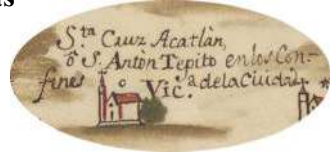 as
Sta Cruz Acatlàn,
ô S. Antòn Tepito en los Con-
fines o Vic.a dela Ciudad